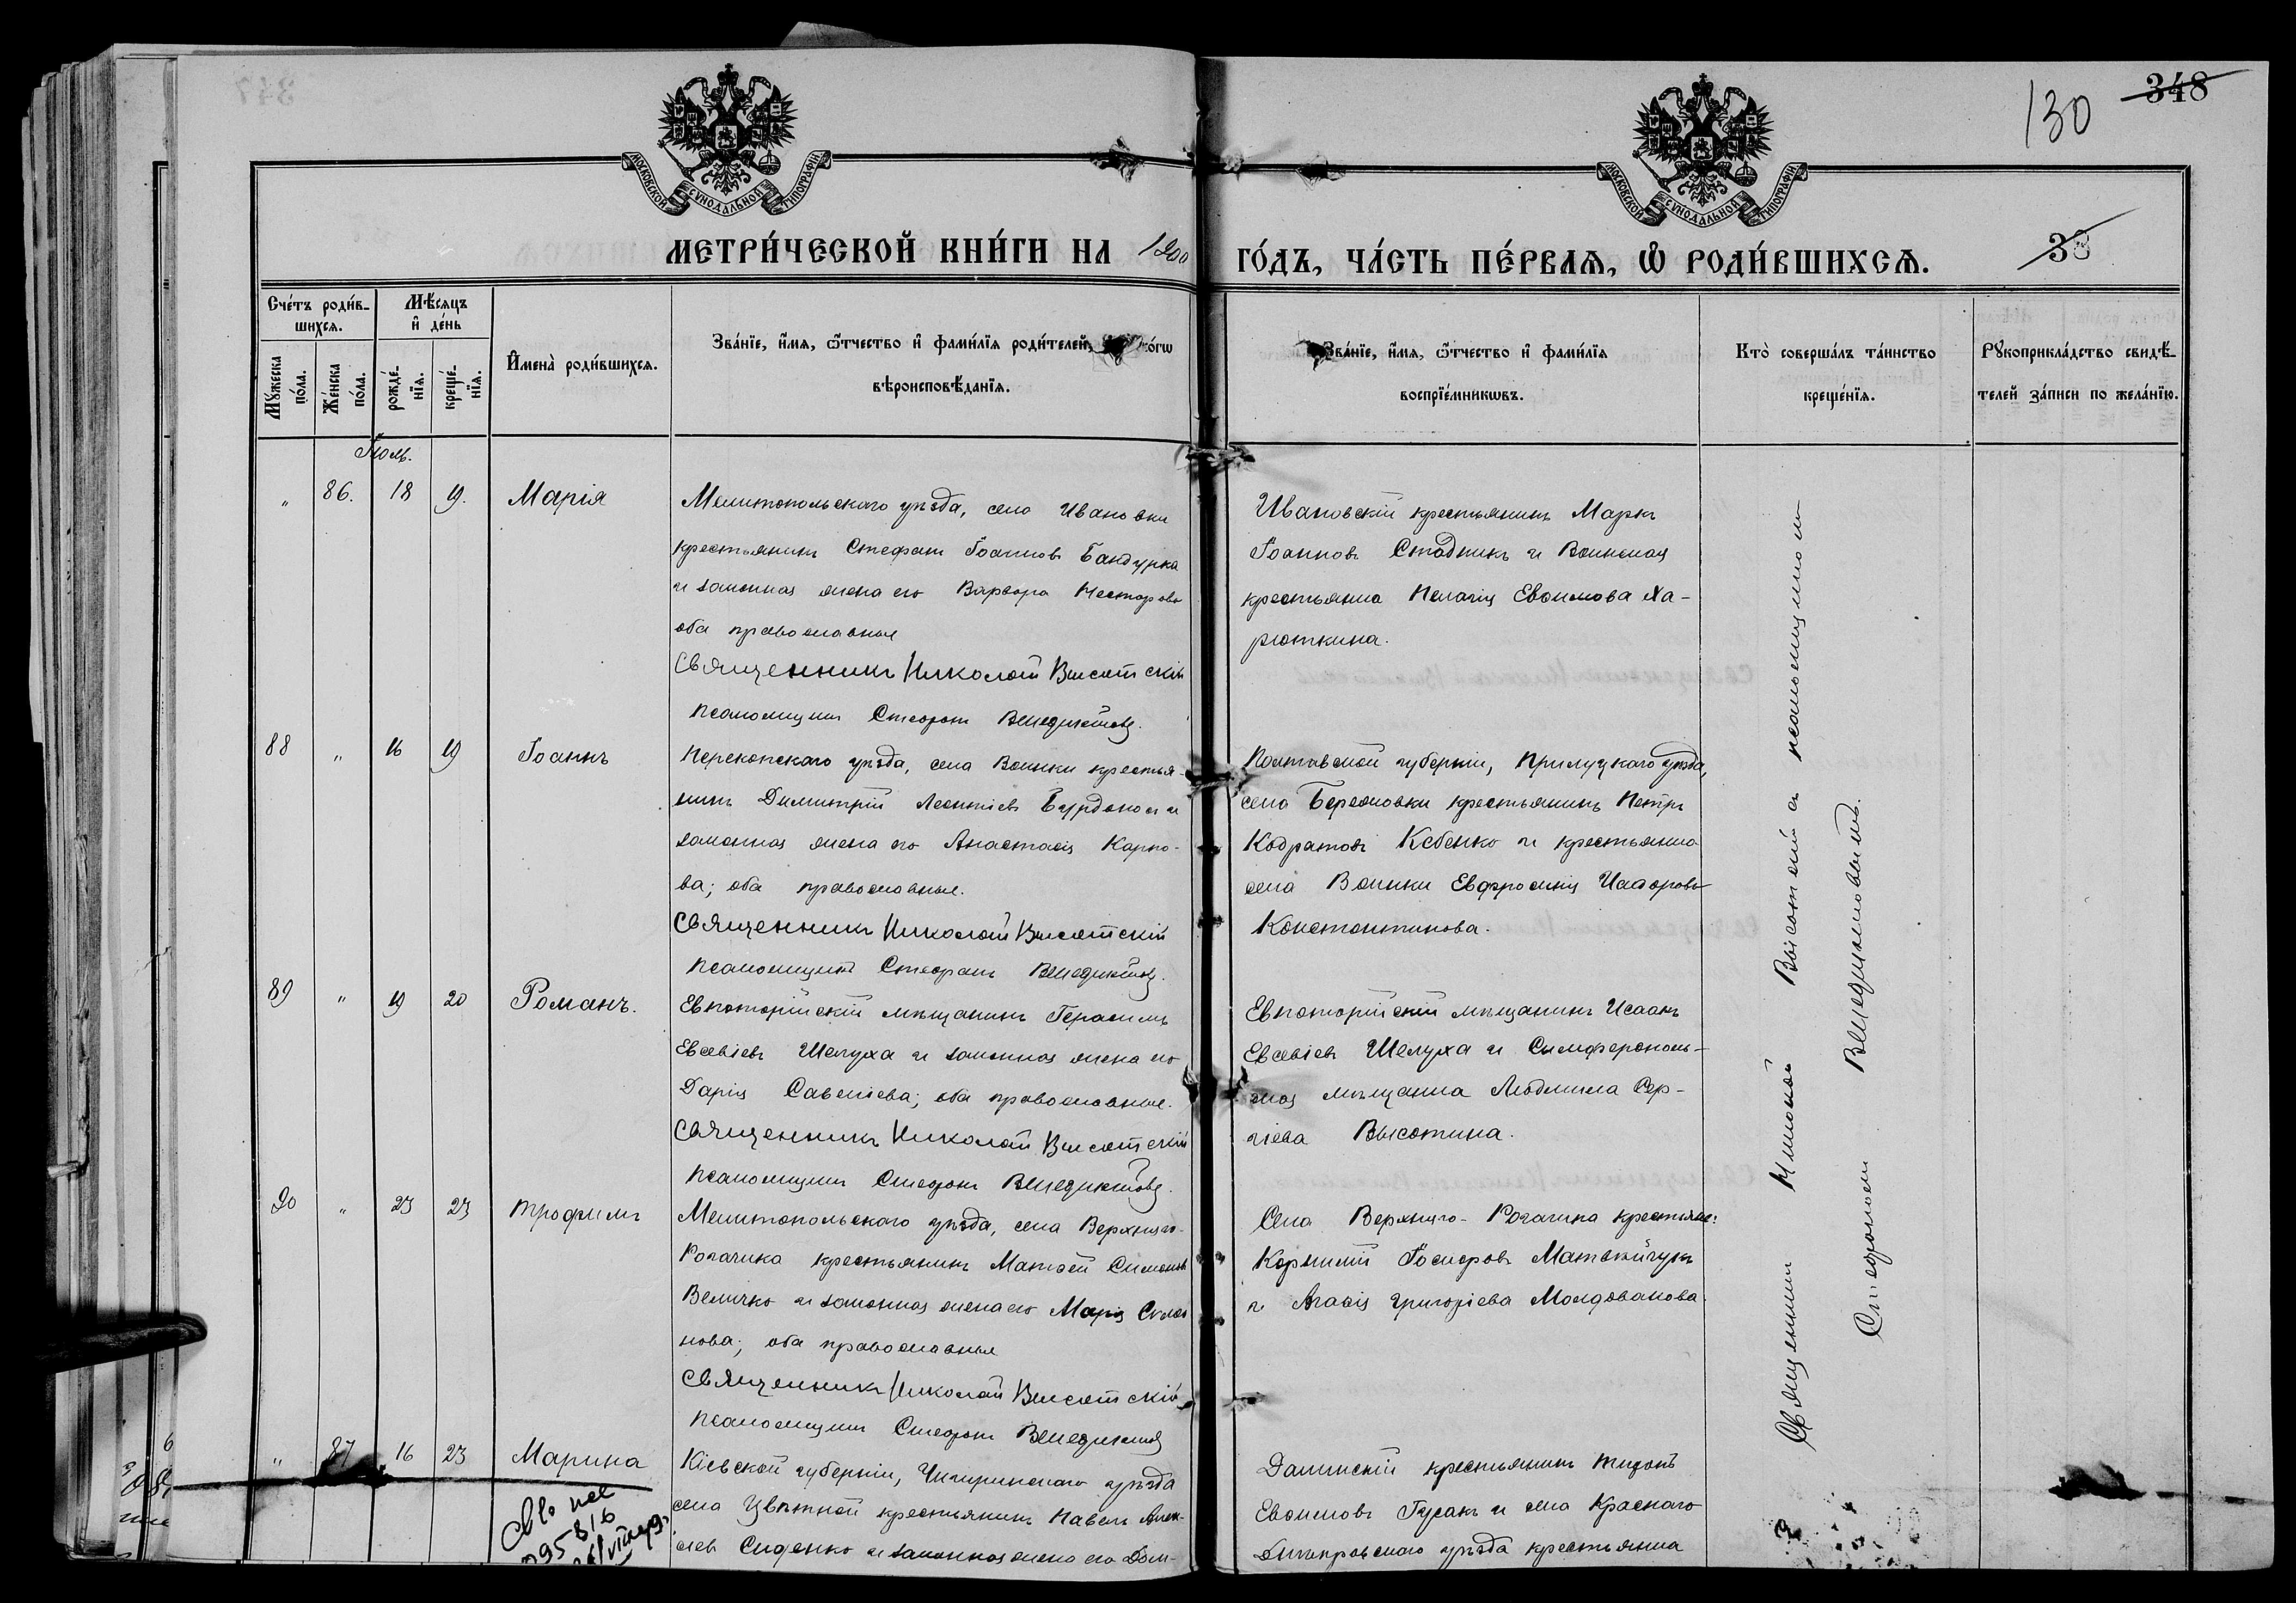 130
348
МОСКОВСКОЙ СѴНОДАЛЬНОЙ ТИПОГРАФІИ
МОСКОВСКОЙ СѴНОДАЛЬНОЙ ТИПОГРАФІИ
МЕТРИ́ЧЕСКОЙ КНИ́ГИ НА 1900 ГО́ДЪ, ЧА́СТЬ ПЕ́РВАѦ, Ѿ РОДИ́ВШИХСѦ.
38
Сче́тъ роди́в-
шихсѧ.
Мꙋжеска по́ла.
Же́нска по́ла.
Мѣ́сѧцъ и҆ де́нь
рожде́-нїѧ.
креще́-нїѧ.
И҆мена̀ роди́вшихсѧ.
Зва́нїе, и҆́мѧ, ѻ҆́тчество и҆ фами́лїѧ роди́телей,
вѣроисповѣ́данїѧ.
Зва́нїе, и҆́мѧ, ѻ҆́тчество и҆ фами́лїѧ
воспрїе́мникѡвъ.
Кто̀ соверша́лъ та́инство
креще́нїѧ.
Рꙋкоприкла́дство свидѣ́-
телей за́писи по жела́нїю.
Іюль.
" 86. 18 19. Марія
Мелитопольскаго уѣзда, села Ивановки
крестьянинъ Стефанъ Іоанновъ Бандурка
и законная жена его Варвара Несторова
оба православные
Священникъ Николай Высотскій
Псаломщикъ Стефанъ Венедиктовъ.
Ивановскій крестьянинъ Маркъ
Іоанновъ Стадникъ и Воинская
крестьянка Пелагія Евѳимова Ха-
рюткина.
88 " 16 19 Іоаннъ
Перекопскаго уѣзда, села Воинки крестья-
нинъ Димитрій Леонтіевъ Бурдоносъ и
законная жена его Анастасія Карпо-
ва; оба православные.
Священникъ Николай Высотскій
Псаломщикъ Стефанъ Венедиктовъ.
Полтавской губерніи, Прилуцкаго уѣзда,
села Березовки крестьянинъ Петръ
Кодратовъ Кебенко и крестьянка
села Воинки Евфросинія Исидорова
Константинова.
89 " 19 20 Романъ.
Евпаторійскій мѣщанинъ Герасимъ
Евсевіевъ Шелуха и законная жена его
Дарія Савеліева; оба православные.
Священникъ Николай Высотскій
Псаломщикъ Стефанъ Венедиктовъ.
Евпаторійскій мѣщанинъ Исаакъ
Евсевіевъ Шелуха и Симферополь-
ская мѣщанка Людмила Сер-
гіева Высотина.
90 " 23 23 Трофимъ
Мелитопольскаго уѣзда, села Верхняго-
Рогачика крестьянинъ Матѳей Симоновъ
Величко и законная жена его Марія
нова; оба православные
Священникъ Николай Высотскій
Псаломщикъ Стефанъ Венедиктовъ
Села Верхняго-Рогачика крестьяне:
Корнилій Іосифовъ Матвѣйчукъ
и Агаѳія Григоріева Молдованова.
" 87 16 23 Марина
Кіевской губерніи, Чигиринскаго уѣзда
села Цвѣтной крестьянинъ Павелъ Алек-
сіевъ Сиденко и законная жена его Дом-
крестьянинъ Тихонъ
Евѳимовъ Гусакъ и села Краснаго
Днѣпровскаго уѣзда крестьянка
Священникъ Николай Высотскій съ псаломщикомъ
Стефаномъ Венедиктовымъ.